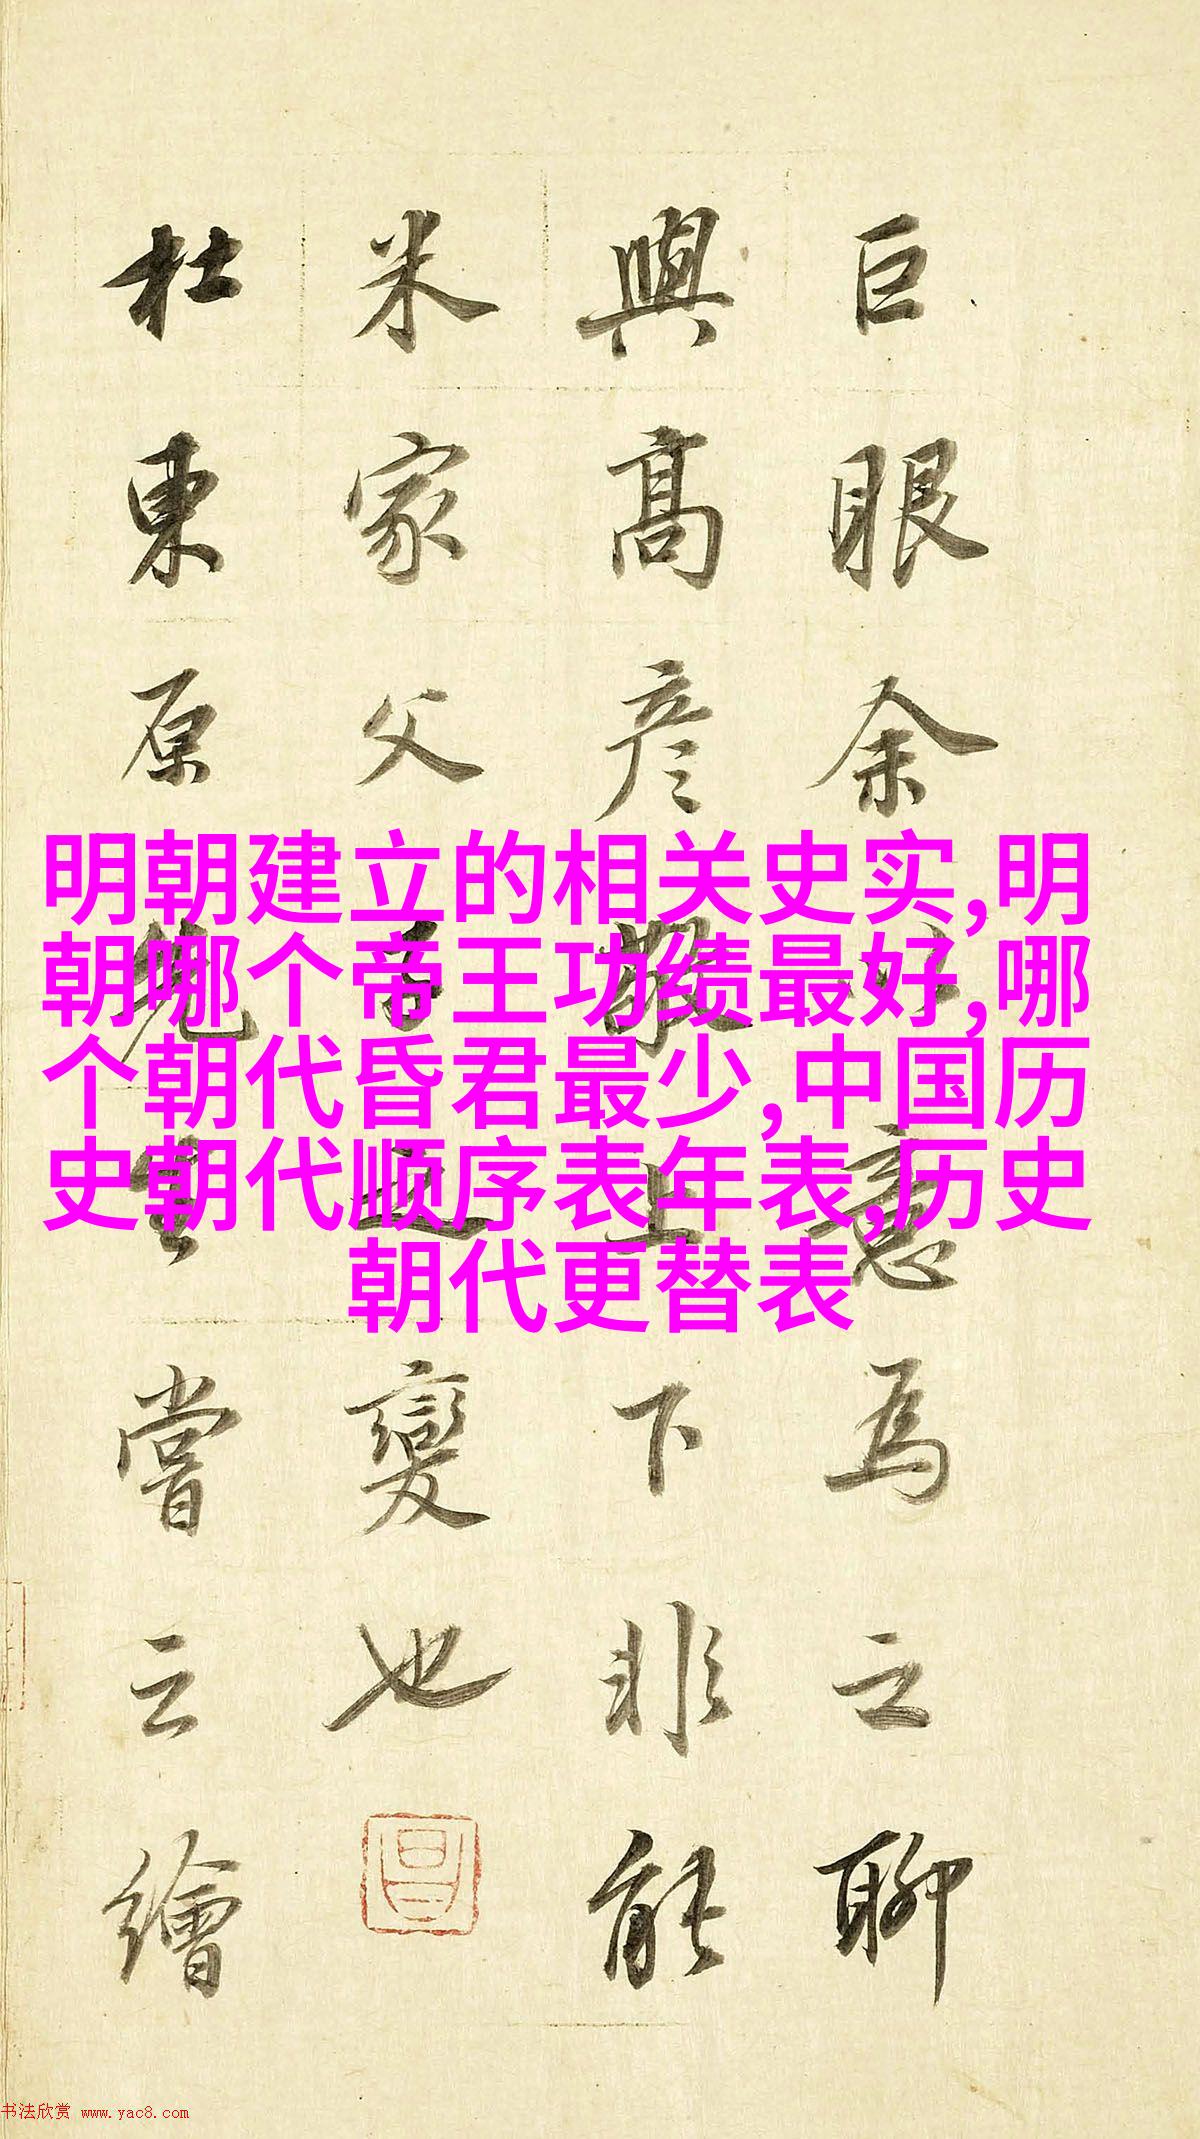 明朝建立的相关史实,明
朝哪个帝王功绩最好,哪
个朝代昏君最少,中国历
史朝代顺序表年表,历史
朝代更替表
巨眼余意為之聊
與高彦敬上下非能
米家父子之變也
杜東原先生嘗云繪
书法欣赏 www.yac8.com